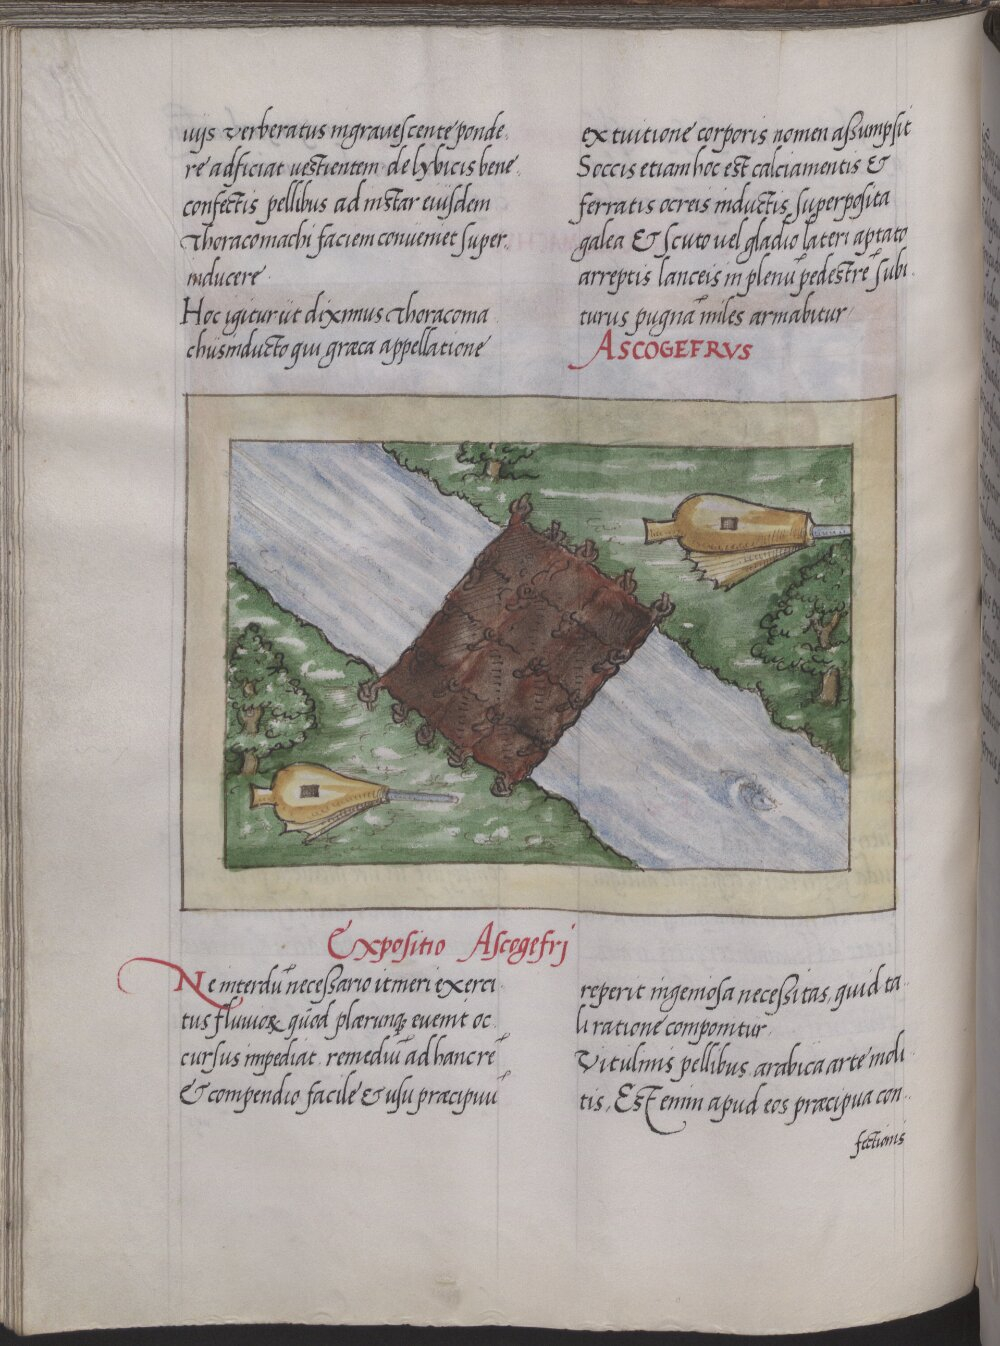 uijs verberatus ingravescente ponde
re adficiat vestientem de lybicis bene
confectis pellibus ad instar eiusdem
Thoracomachi faciem conveniet super
inducere
Hoc igitur ut diximus Thoracoma
chus inducto qui græca appellatione
ex tuitione corporis nomen assumpsit
Soccis etiam hoc est calciamentis &
ferratis ocreis inductis superposita
galea & scuto vel gladio lateri aptato
arreptis lanceis in plenū pedestrē subi
turus pugnā miles armabitur
ASCOGEFRVS
Expositio Ascogefri
Ne interdū necessario itineri exerci
tus fluuioꝝ quod plærunqꝫ evenit oc
cursus impediat remediū ad hanc rē
& compendio facile & usu præcipuū
reperit ingeniosa necessitas, quid ta
li ratione componitur
Vitulinis pellibus arabica arte moli
tis, Est enim apud eos præcipua con
fectionis